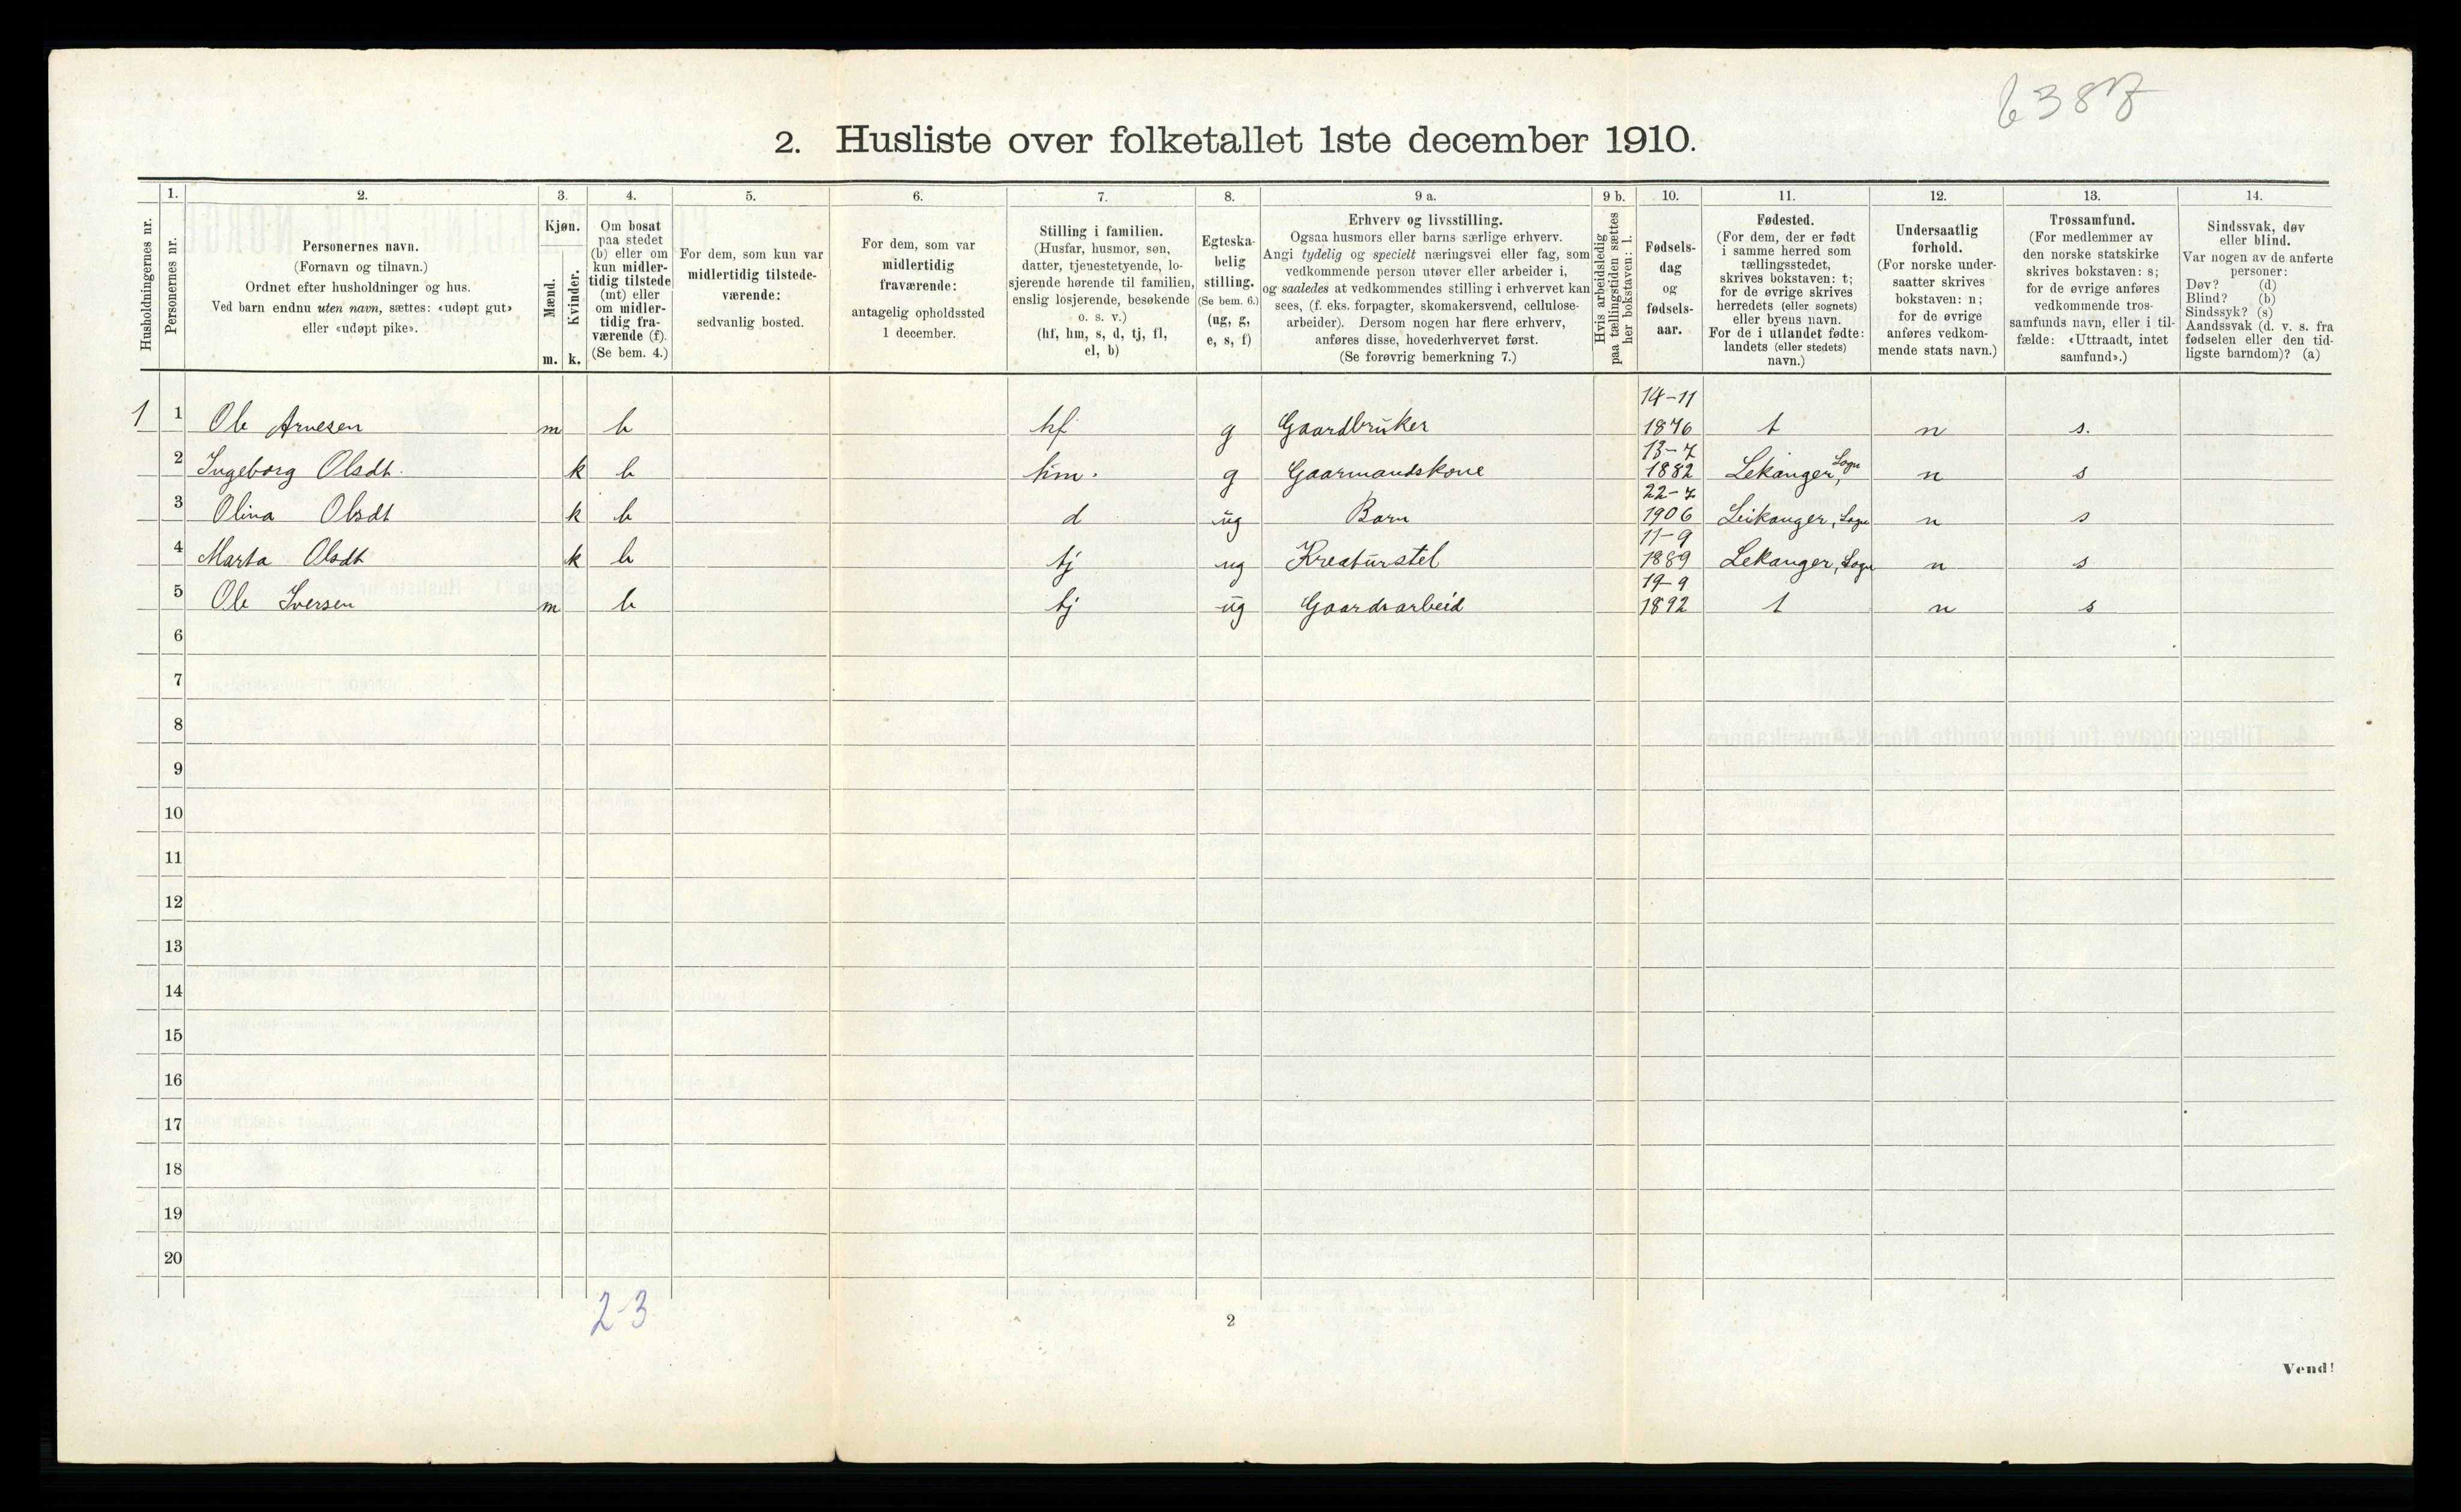 6387
2. Husliste over folketallet 1ste december 1910.
Husholdningernes nr.
1. Personernes nr.
2. Personernes navn.
(Fornavn og tilnavn.)
Ordnet efter husholdninger og hus.
Ved barn endnu uten navn, sættes: «udøpt gut»
eller «udøpt pike».
3. Kjøn.
Mænd. m.
Kvinder. k.
4. Om bosat
paa stedet
(b) eller om
kun midler-
tidig tilstede
(mt) eller
om midler-
tidig fra-
værende (f).
(Se bem. 4.)
5. For dem, som kun var
midlertidig tilstede-
værende:
sedvanlig bosted.
6. For dem, som var
midlertidig
fraværende:
antagelig opholdssted
1 december.
7. Stilling i familien.
(Husfar, husmor, søn,
datter, tjenestetyende, lo-
sjerende hørende til familien,
enslig losjerende, besøkende
o. s. v.)
(hf, hm, s, d, tj, fl,
el, b)
8. Egteska-
belig
stilling.
(Se bem. 6.)
(ug, g,
e, s, f)
9 a. Erhverv og livsstilling.
Ogsaa husmors eller barns særlige erhverv.
Angi tydelig og specielt næringsvei eller fag, som
vedkommende person utøver eller arbeider i,
og saaledes at vedkommendes stilling i erhvervet kan
sees, (f. eks. forpagter, skomakersvend, cellulose-
arbeider). Dersom nogen har flere erhverv,
anføres disse, hovederhvervet først.
(Se forøvrig bemerkning 7.)
9 b. Hvis arbeidsledig
paa tællingstiden sættes
her bokstaven: l.
10. Fødsels-
dag
og
fødsels-
aar.
11. Fødested.
(For dem, der er født
i samme herred som
tællingsstedet,
skrives bokstaven: t;
for de øvrige skrives
herredets (eller sognets)
eller byens navn.
For de i utlandet fødte:
landets (eller stedets)
navn.)
12. Undersaatlig
forhold.
(For norske under-
saatter skrives
bokstaven: n;
for de øvrige
anføres vedkom-
mende stats navn.)
13. Trossamfund.
(For medlemmer av
den norske statskirke
skrives bokstaven: s;
for de øvrige anføres
vedkommende tros-
samfunds navn, eller i til-
fælde: «Uttraadt, intet
samfund».)
14. Sindssvak, døv
eller blind.
Var nogen av de anførte
personer:
Døv? (d)
Blind? (b)
Sindssyk? (s)
Aandssvak (d. v. s. fra
fødselen eller den tid-
ligste barndom)? (a)
1 1 Ole Arnesen m b hf g Gaardbruker 14-11 1876 t n s.
2 Ingeborg Olsdt. k b hm. g Gaarmandskone 13-7 1882 Lekanger, Sogn n s
3 Olina Olsdt k b d ug Barn 22-7 1906 Leikanger, Sogn n s
4 Marta Olsdt k b tj ug Kreaturstel 11-9 1889 Lekanger, Sogn n s
5 Ole Iversen m b tj ug Gaardsarbeid 19-9 1892 t n s
6
7
8
9
10
11
12
13
14
15
16
17
18
19
20
2-3
2
Vend!